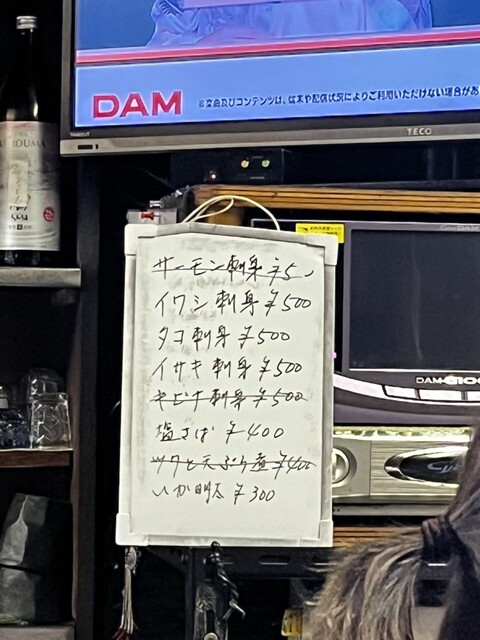 DAM
※楽曲及びコンテンツは、端末や配信状況によりご利用いただけない場合があ
TECO
サーモン刺身 ¥5
イワシ刺身 ¥500
タコ刺身 ¥500
イサキ刺身 ¥500
キビナ刺身 ¥500
塩さば ¥400
ツワと天ぷら煮 ¥400
いか明太 ¥300
DAM-